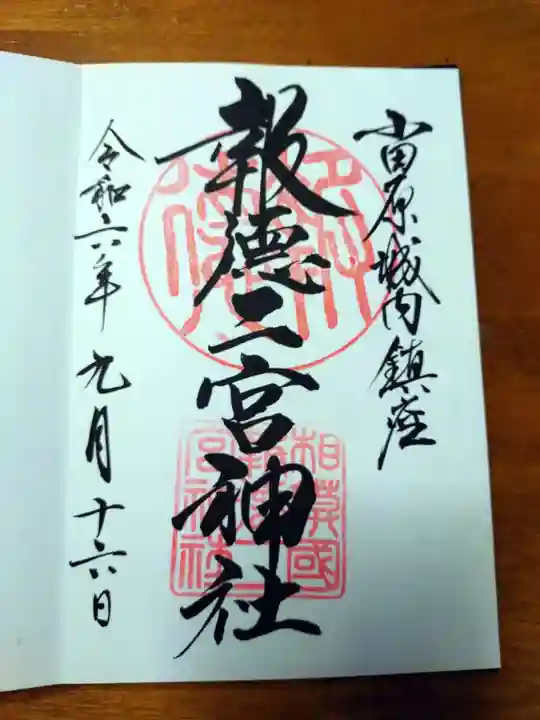 小田原城内鎮座
報徳二宮神社
令和六年九月十六日
相模國
報徳二
宮神社